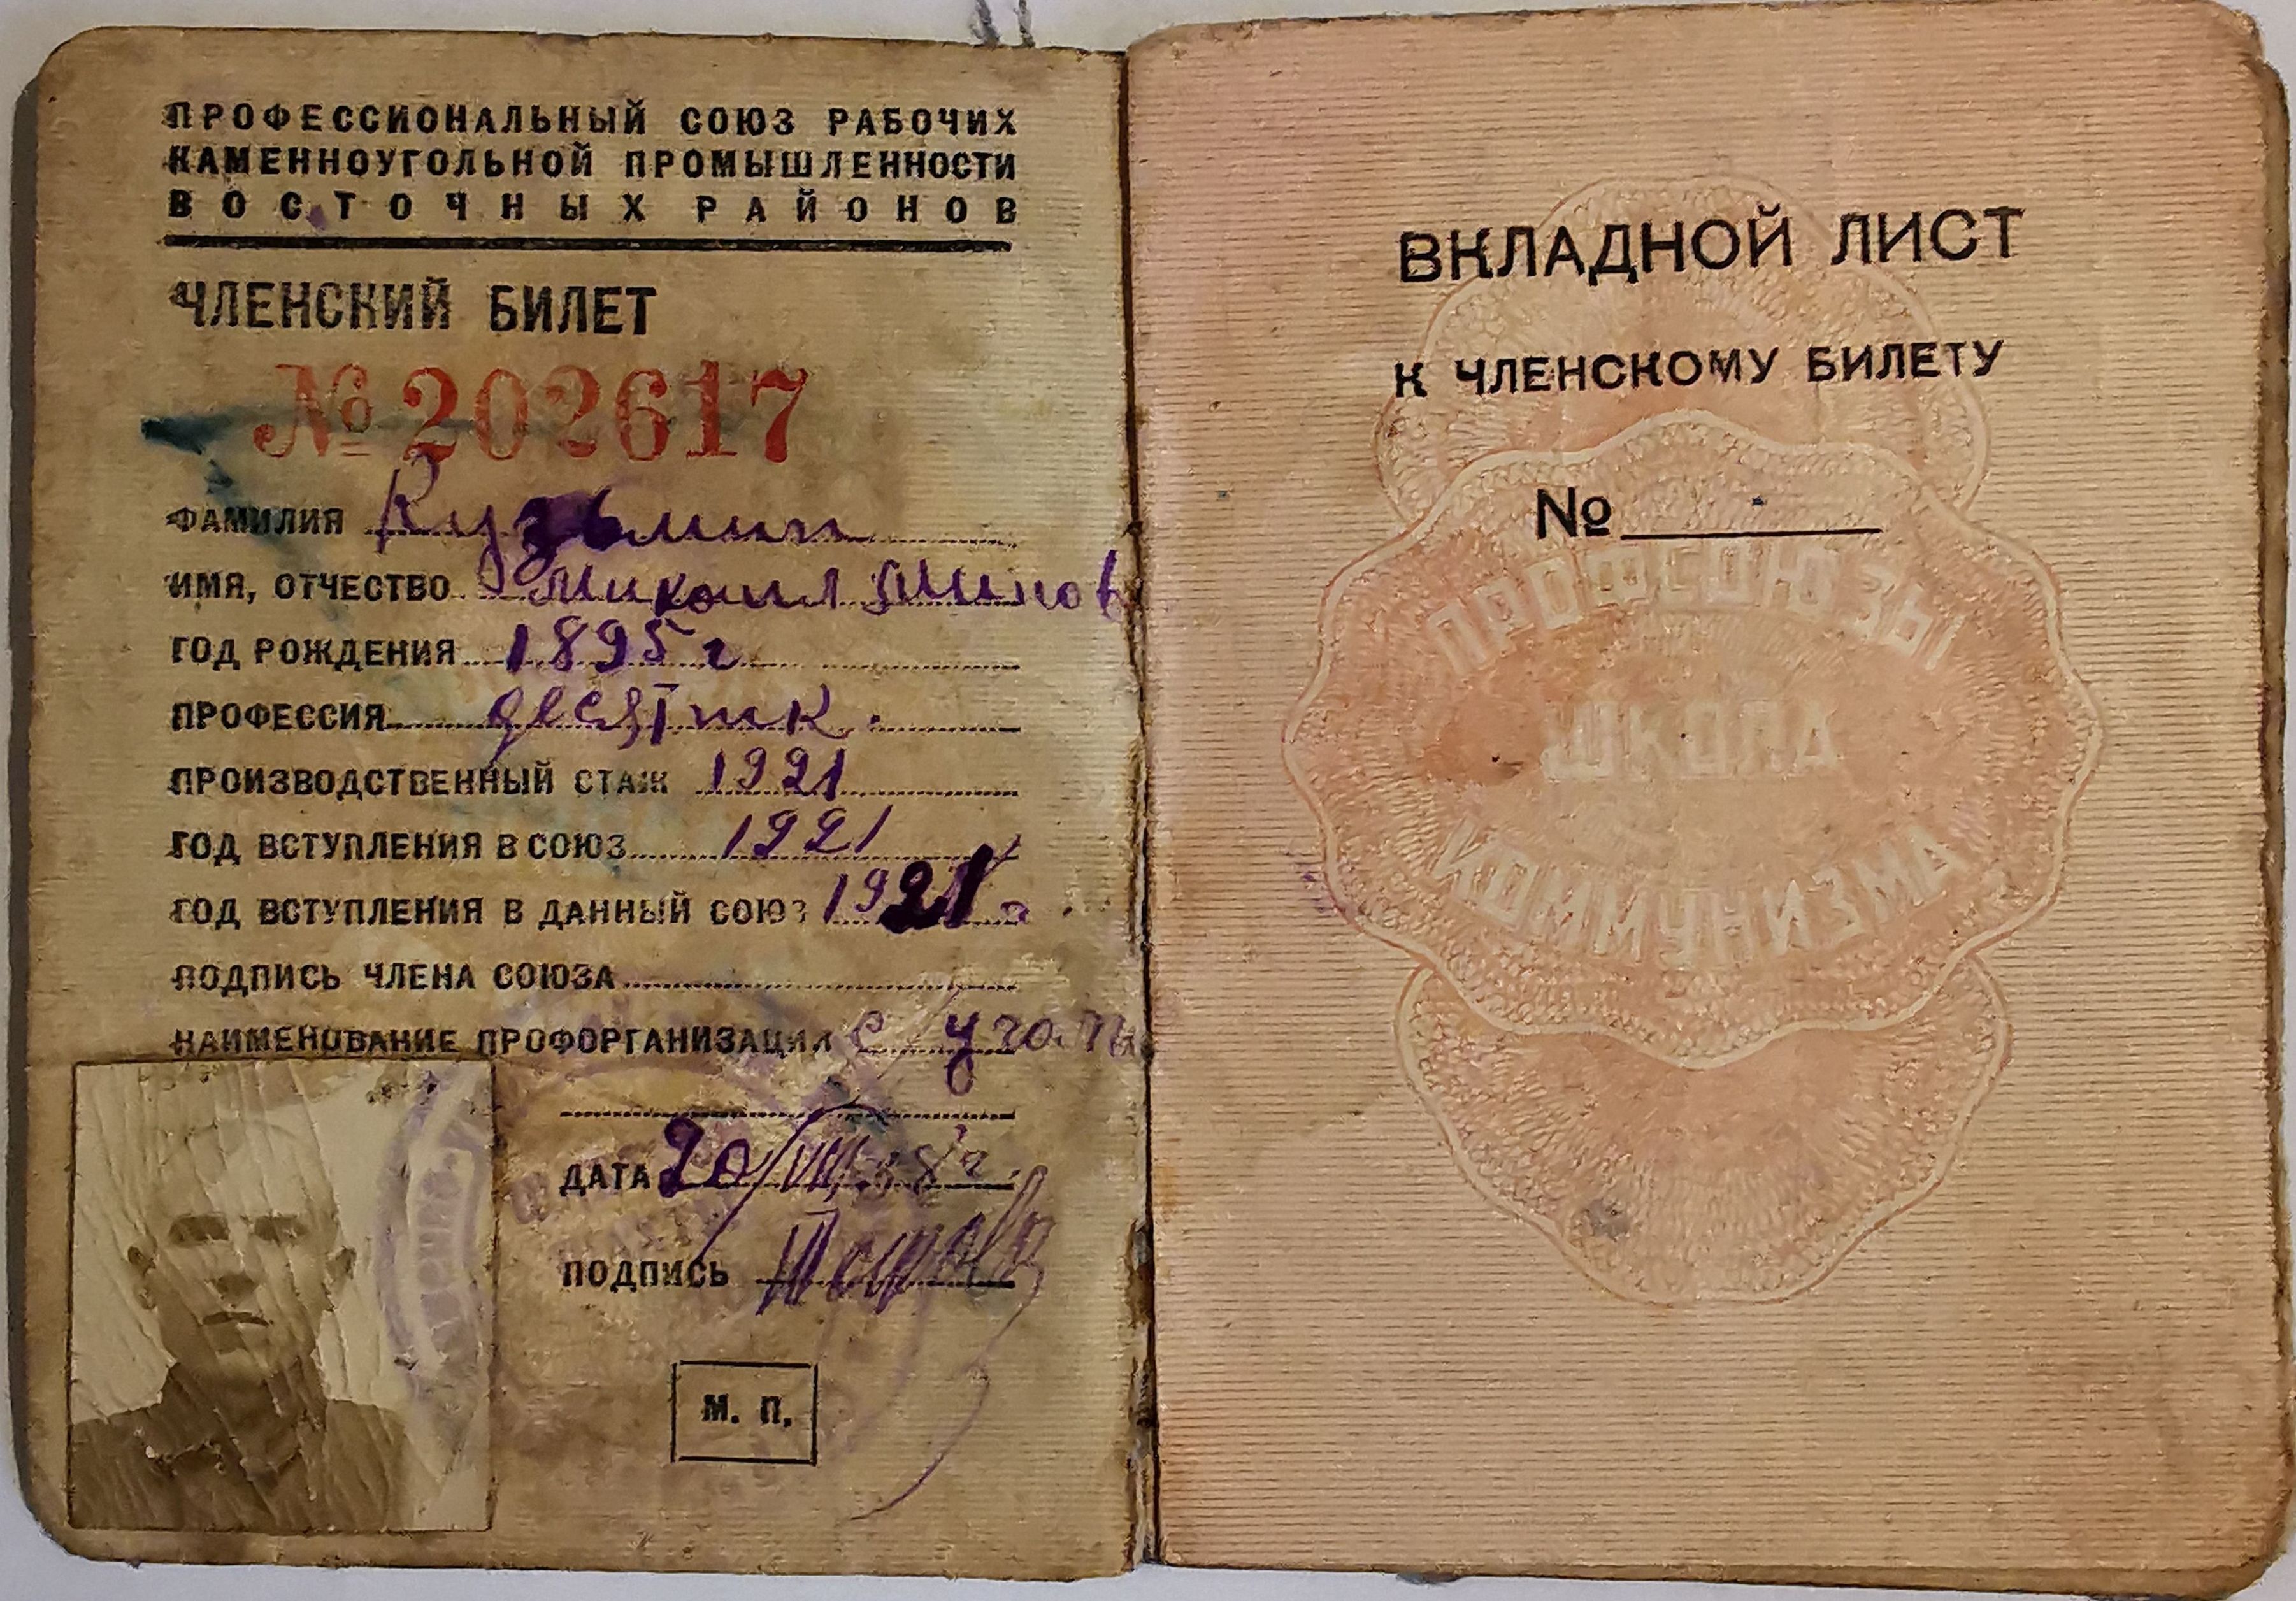 ПРОФЕССИОНАЛЬНЫЙ СОЮЗ РАБОЧИХ
КАМЕННОУГОЛЬНОЙ ПРОМЫШЛЕННОСТИ
ВОСТОЧНЫХ РАЙОНОВ
ЧЛЕНСКИЙ БИЛЕТ
№ 202617
ФАМИЛИЯ Кузьмин
ИМЯ, ОТЧЕСТВО Михаил
ГОД РОЖДЕНИЯ 1895 г
ПРОФЕССИЯ десятник.
ПРОИЗВОДСТВЕННЫЙ СТАЖ 1921
ГОД ВСТУПЛЕНИЯ В СОЮЗ 1921
ГОД ВСТУПЛЕНИЯ В ДАННЫЙ СОЮЗ 1921
ПОДПИСЬ ЧЛЕНА СОЮЗА
НАИМЕНОВАНИЕ ПРОФОРГАНИЗАЦИИ
ДАТА 20/VIII 38 г.
ПОДПИСЬ
М. П.
ВКЛАДНОЙ ЛИСТ
К ЧЛЕНСКОМУ БИЛЕТУ
№
ПРОФСОЮЗЫ
ШКОЛА
КОММУНИЗМА